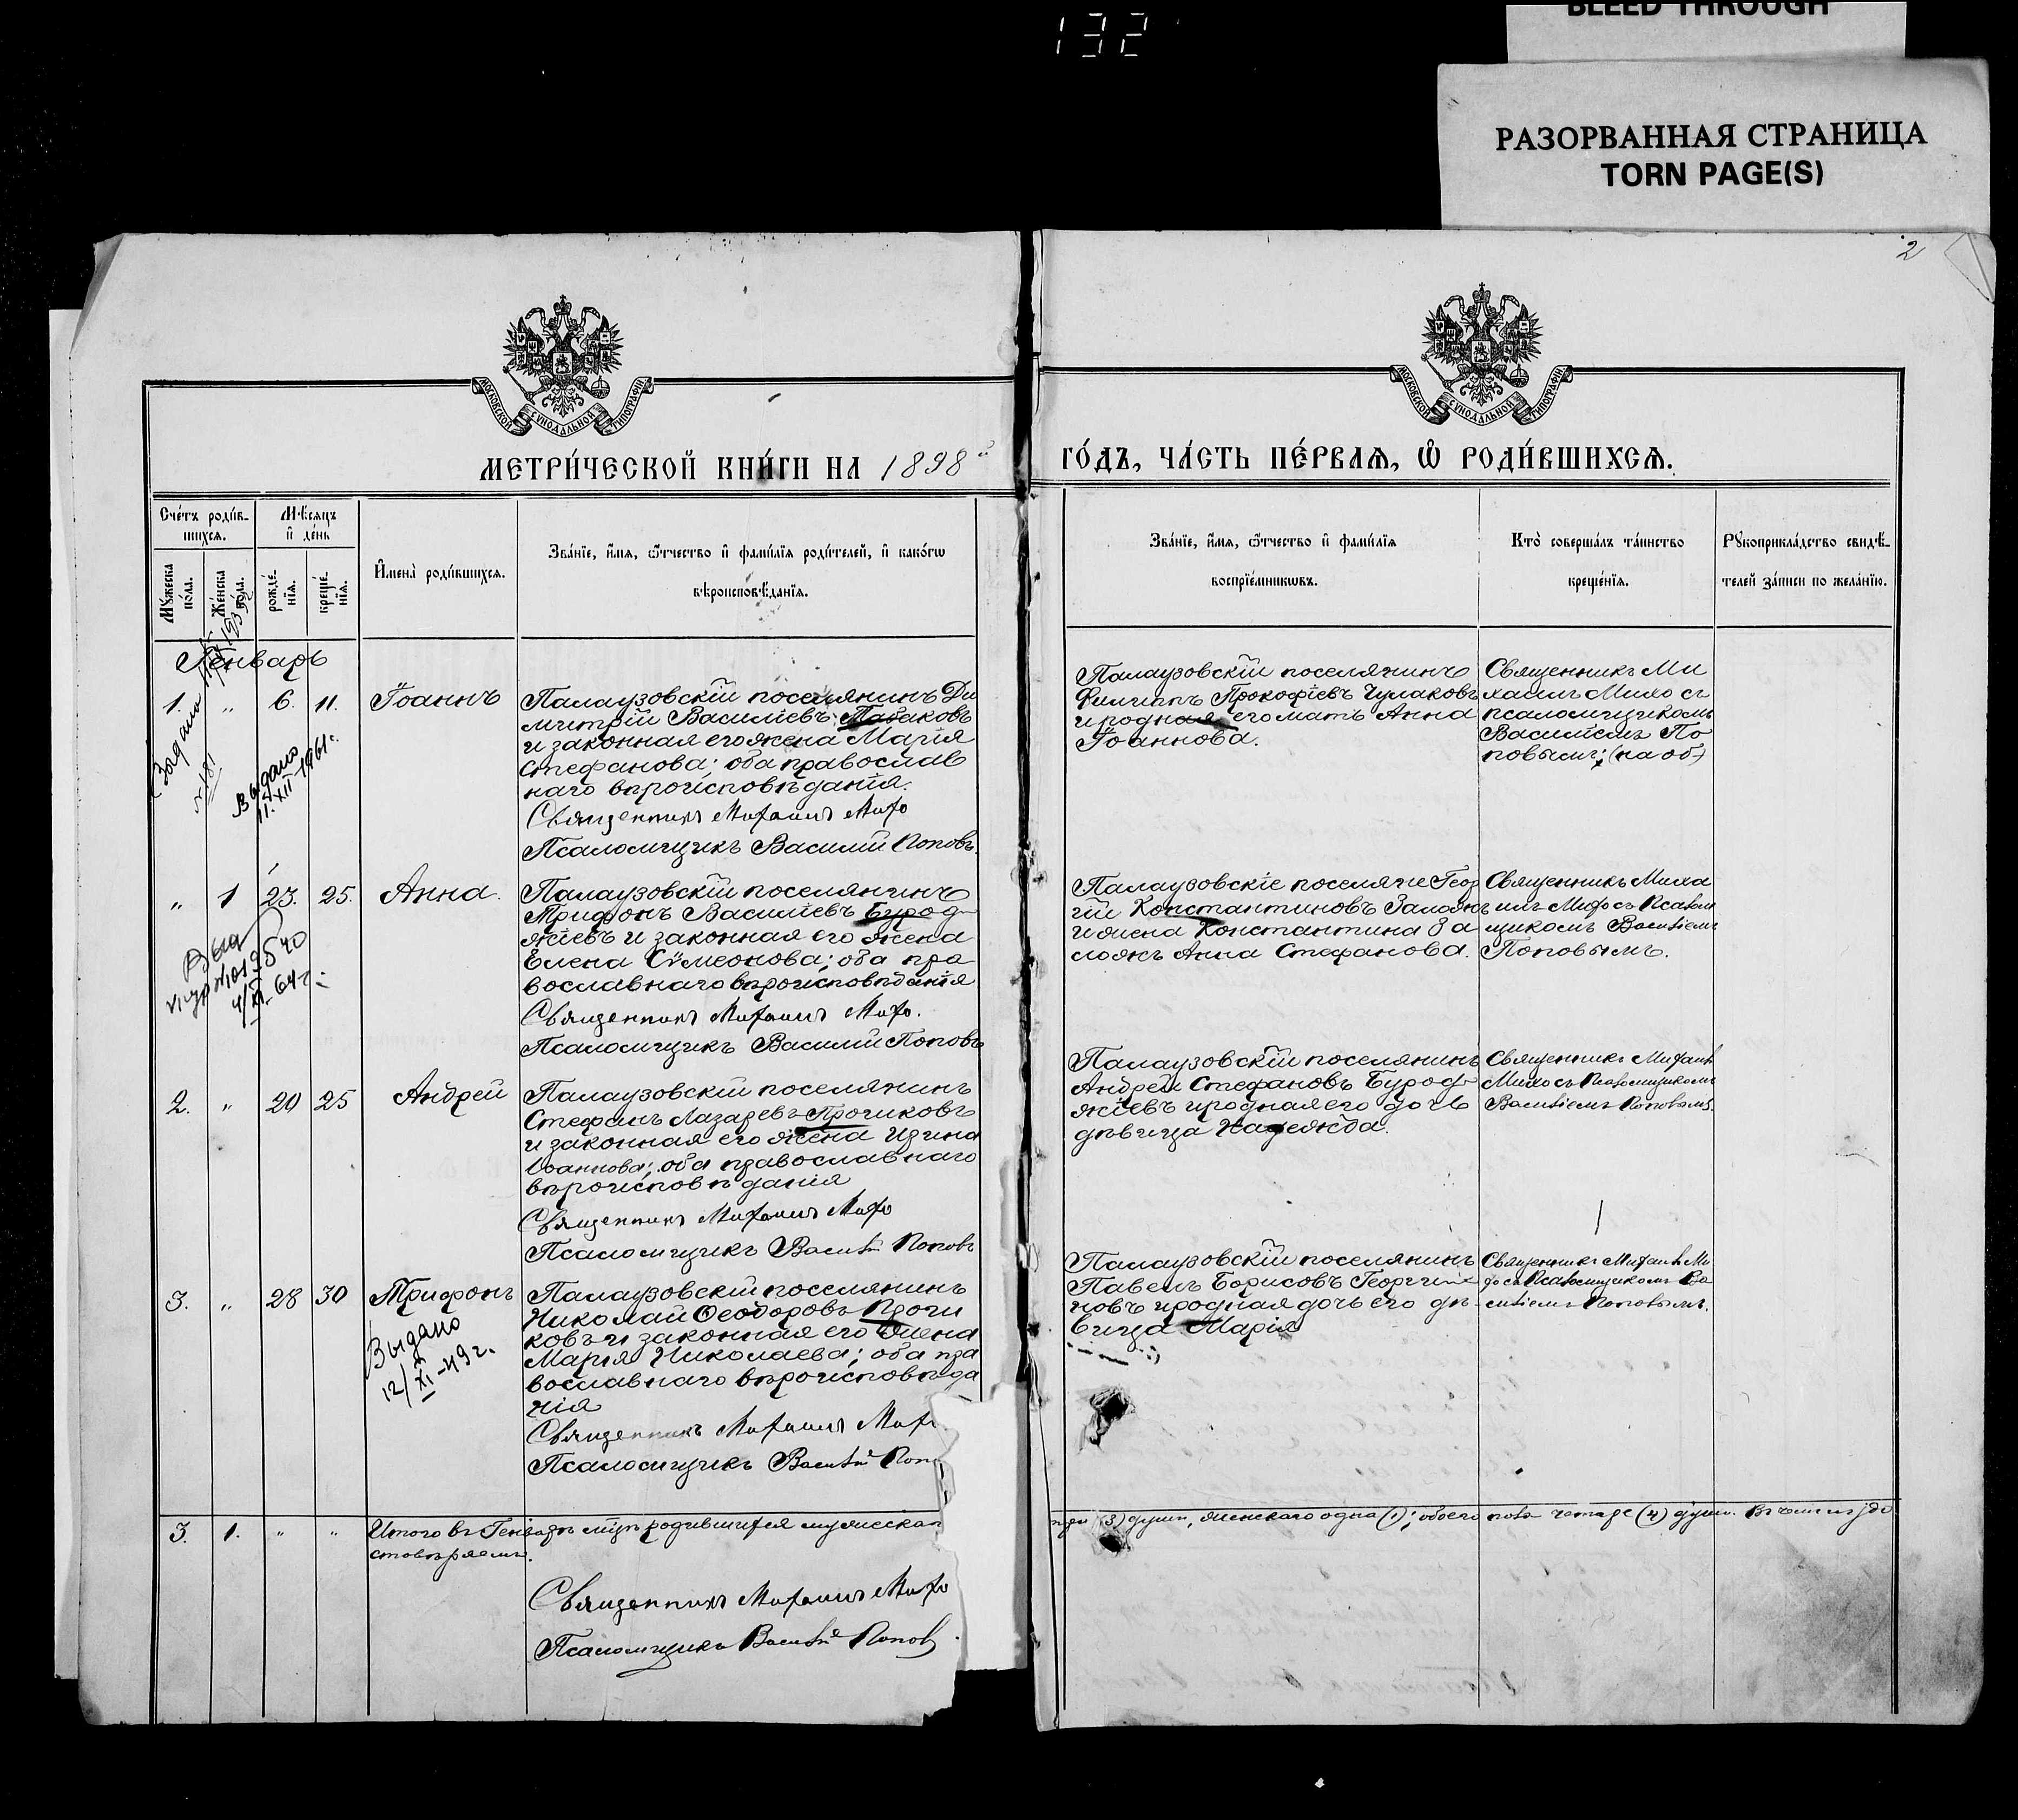 132
BLEED THROUGH
РАЗОРВАННАЯ СТРАНИЦА
TORN PAGE(S)
2
МОСКОВСКОЙ СѴНОДАЛЬНОЙ ТИПОГРАФІИ
МОСКОВСКОЙ СѴНОДАЛЬНОЙ ТИПОГРАФІИ
МЕТРИ́ЧЕСКОЙ КНИ́ГИ НА 1898й ГО́ДЪ, ЧА́СТЬ ПЕ́РВАѦ, Ѡ РОДИ́ВШИХСѦ.
Сче́тъ роди́в-
шихсѧ.
Мѣсяцъ
и҆ де́нь
Мꙋжеска
по́ла.
Же́нска
по́ла.
рожде́-
нїѧ.
креще́-
нїѧ.
И҆мена̀ роди́вшихсѧ.
Зва́нїе, и҆́мѧ, ѻ҆́тчество и҆ фами́лїѧ роди́телей, и҆ како́гѡ
вѣроисповѣ́данїѧ.
Зва́нїе, и҆́мѧ, ѻ҆́тчество и҆ фами́лїѧ
воспрїе́мникѡвъ.
Кто̀ соверша́лъ та́инство
креще́нїѧ.
Рꙋкоприкла́дство свидѣ́-
телей за́писи по жела́нїю.
Генварь
1. " 6. 11. Іоаннъ
Палаузовскій поселянинъ Ди
митрій Василіевъ Табаковъ
и законная его жена Марія
Стефанова; оба православ
наго вѣроисповѣданія.
Священникъ Михаилъ Михо
Псаломщикъ Василій Поповъ.
Палаузовскій поселянинъ
Филиппъ Прокофіевъ Чулаковъ
и родная его мать Анна
Іоаннова.
Священникъ Ми
хаилъ Михо съ
псаломщикомъ
Василіемъ По
повымъ; (на об)
Выдано
№181.
Выдано
11.XII 1961г.
" 1 23. 25. Анна.
Палаузовскій поселянинъ
Трифонъ Василіевъ Бурод-
жіевъ и законная его жена
Елена Сѵмеонова; оба пра
вославнаго вѣроисповѣданія
Священникъ Михаилъ Михо.
Псаломщикъ Василій Поповъ
Палаузовскіе поселяне Геор
гій Константиновъ Заложъ
и жена Константина За
ложъ Анна Стефанова.
Священникъ Миха
илъ Михо съ Псалом
щикомъ Василіемъ
Поповымъ.
2. " 20 25 Андрей
Палаузовскій поселянинъ
Стефанъ Лазаревъ Прочиковъ
и законная его жена Ирина
Іоаннова; оба православнаго
вѣроисповѣданія
Священникъ Михаилъ Михо
Псаломщикъ Василій Поповъ
Палаузовскій поселянинъ
Андрей Стефановъ Бурод-
жіевъ и родная его дочь
дѣвица Надежда.
Священникъ Михаилъ
Михо съ Псаломщикомъ
Василіемъ Поповымъ.
3. " 28 30 Трифонъ
Выдано
12/XI-49г.
Палаузовскій поселянинъ
Николай Ѳеодоровъ Прочи
ковъ и законная его жена
Марія Николаева; оба пра
вославнаго вѣроисповѣда
нія
Священникъ Михаилъ Михо
Псаломщикъ Василій Попо
Палаузовскій поселянинъ
Павелъ Борисовъ Георгие
новъ и родная дочь его дѣ-
вица Марія
Священникъ Михаилъ Ми
хо съ Псаломщикомъ Ва
силіемъ Поповымъ.
3. 1. " " Итого въ Генварѣ мцѣ родившихся мужескаго
три (3) души, женскаго одна (1); обоего пола четыре (4) души. Въ чемъ и удо
стовѣряемъ.
Священникъ Михаилъ Михо
Псаломщикъ Василій Поповъ.